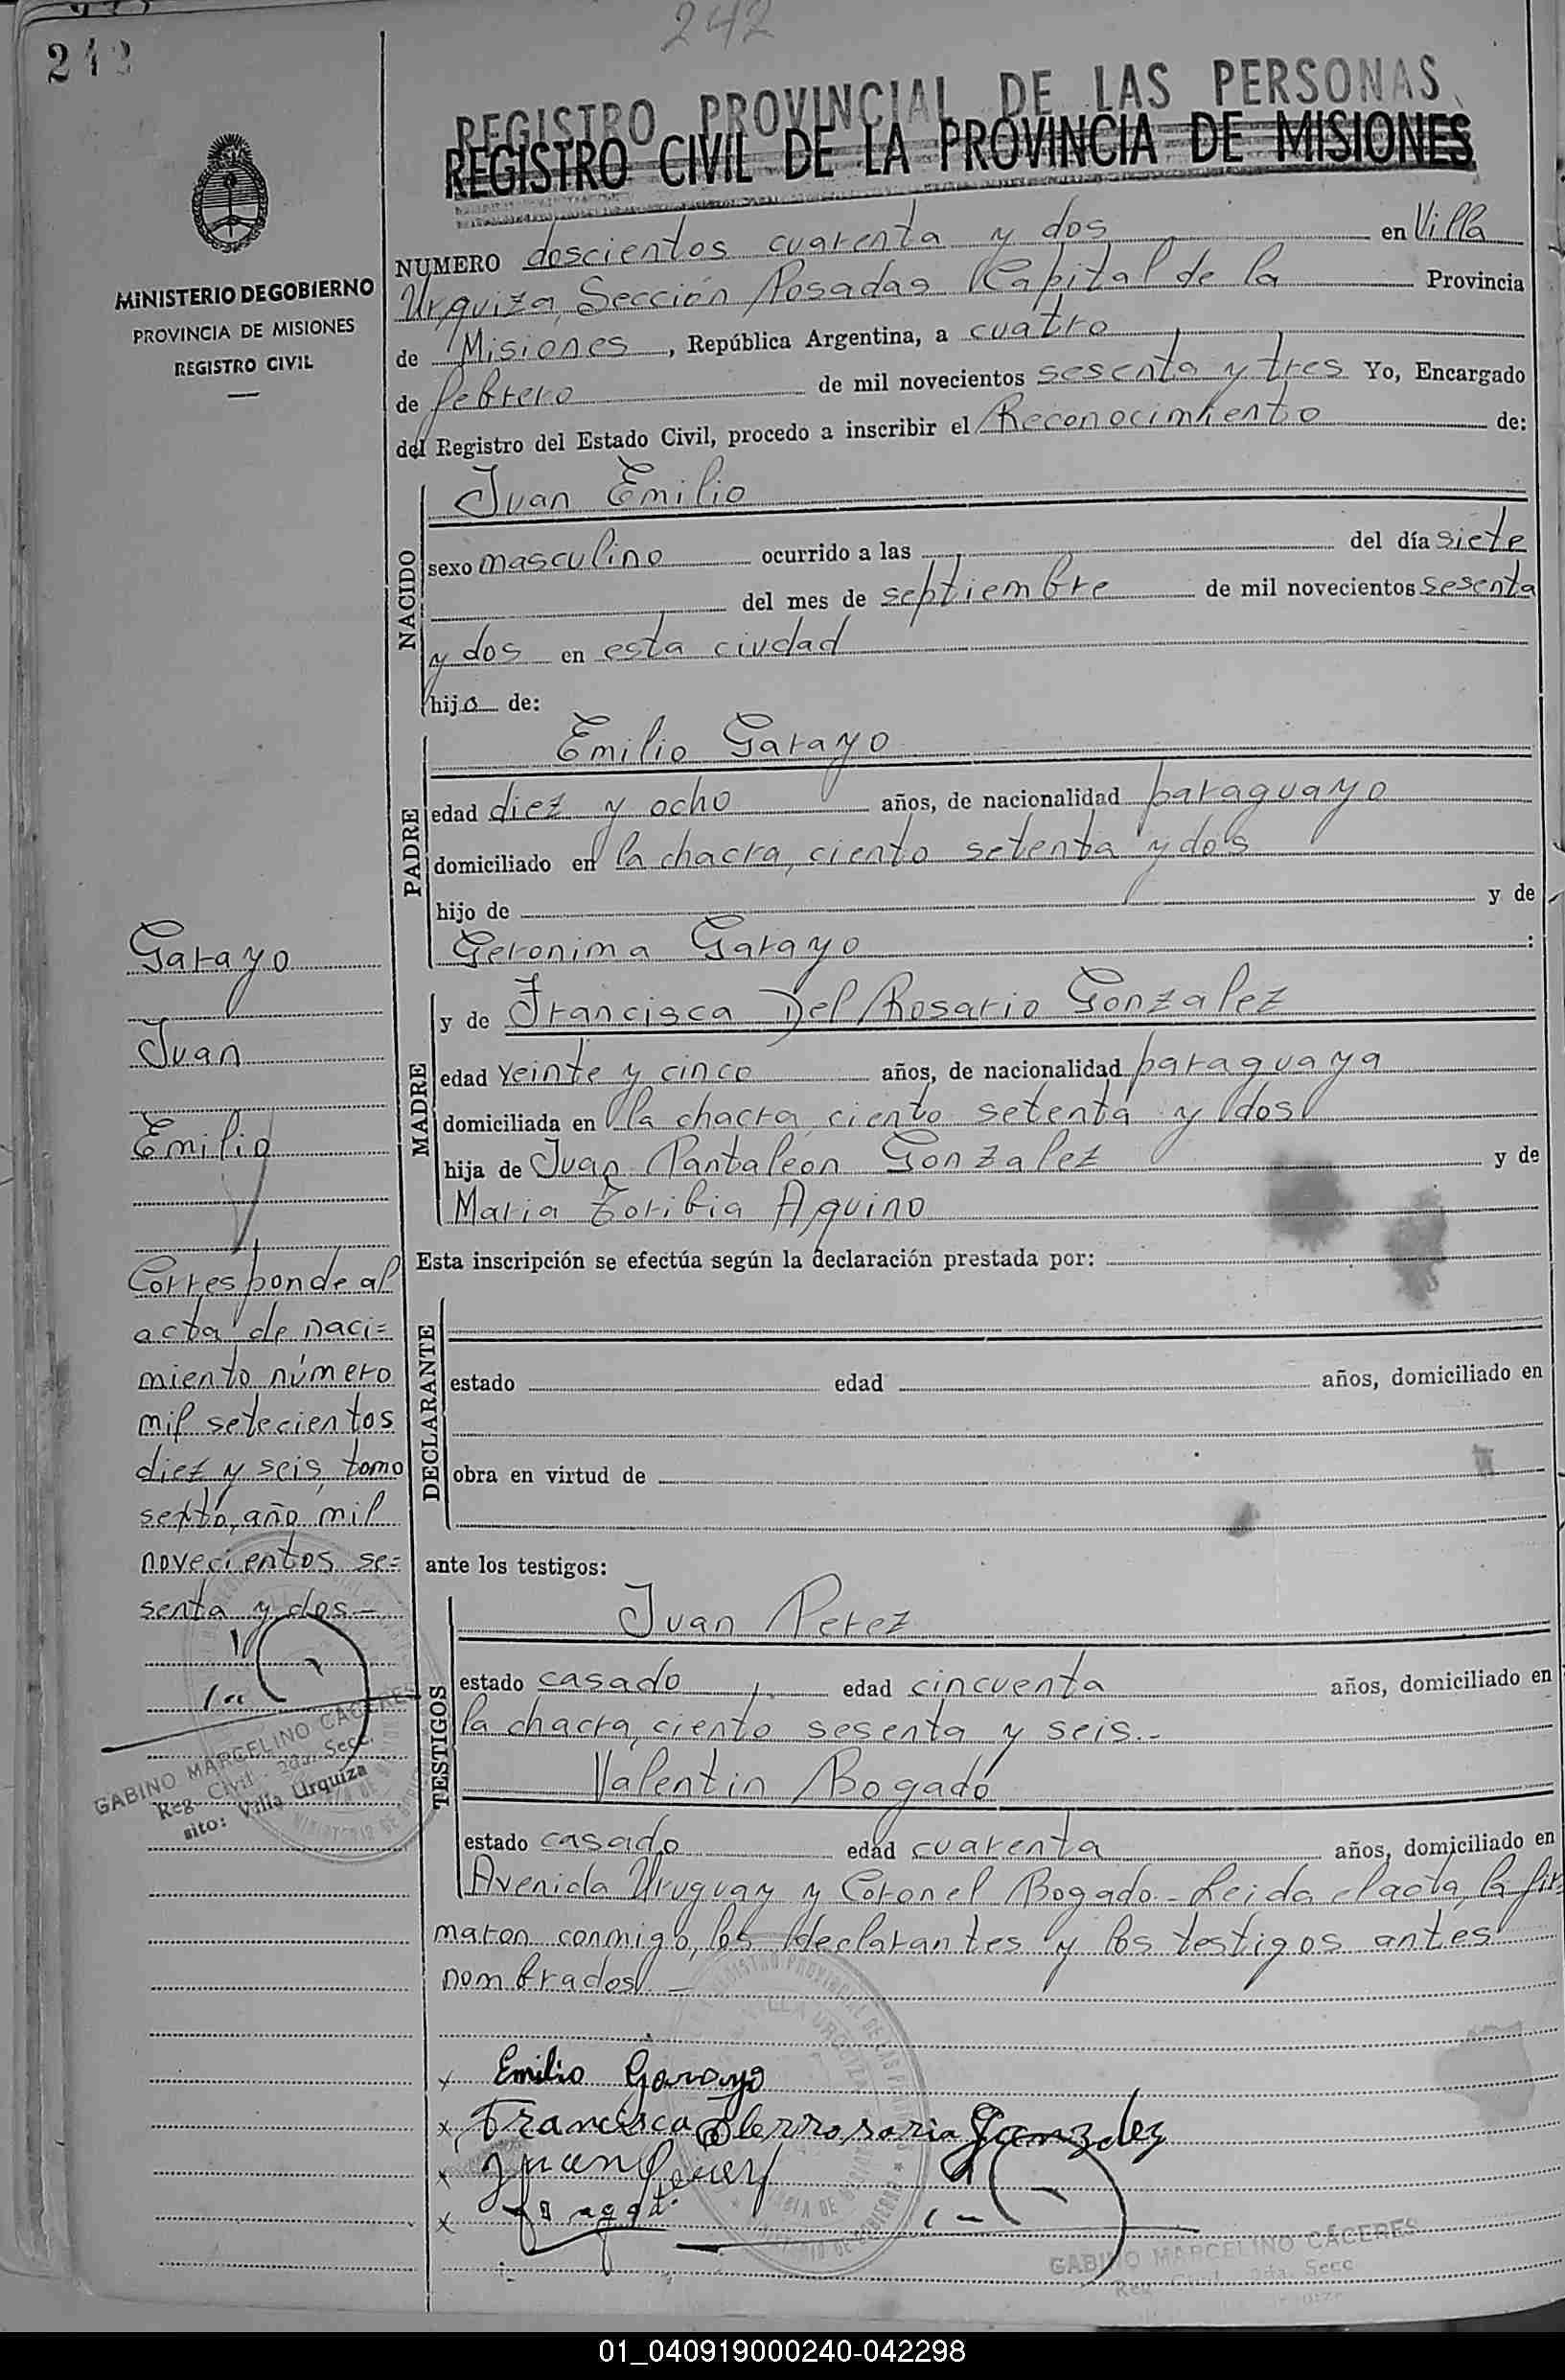 242
242
REGISTRO PROVINCIAL DE LAS PERSONAS
REGISTRO CIVIL DE LA PROVINCIA DE MISIONES
MINISTERIO DE GOBIERNO
PROVINCIA DE MISIONES
REGISTRO CIVIL
NUMERO doscientos cuarenta y dos en Villa
Urquiza, Sección Posadas Capital de la Provincia
de Misiones, República Argentina, a cuatro
de febrero de mil novecientos sesenta y tres Yo, Encargado
del Registro del Estado Civil, procedo a inscribir el Reconocimiento de:
NACIDO
Juan Emilio
sexo masculino ocurrido a las del día siete
del mes de septiembre de mil novecientos sesenta
y dos en esta ciudad
hijo de:
PADRE
Emilio Garayo
edad diez y ocho años, de nacionalidad paraguayo
domiciliado en la chacra, ciento setenta y dos
hijo de y de
Geronima Garayo :
MADRE
y de Francisca Del Rosario Gonzalez
edad veinte y cinco años, de nacionalidad paraguaya
domiciliada en la chacra ciento setenta y dos
hija de Juan Pantaleon Gonzalez y de
Maria Toribia Aquino
Esta inscripción se efectúa según la declaración prestada por:
DECLARANTE
estado edad años, domiciliado en
obra en virtud de
ante los testigos:
TESTIGOS
Juan Perez
estado casado edad cincuenta años, domiciliado en
la chacra, ciento sesenta y seis.-
Valentin Bogado
estado casado edad cuarenta años, domiciliado en
Avenida Uruguay y Coronel Bogado - Leida el acta, la fir
maron conmigo, los declarantes y los testigos antes
nombrados. -
Garayo
Juan
Emilio
Corresponde al
acta de naci=
miento número
mil setecientos
diez y seis, tomo
sexto, año mil
novecientos se=
senta y dos -
GABINO MARCELINO CÁCERES
Reg. Civil - 2da. Secc.
sito: Villa Urquiza
x Emilio Garayo
x Francisca Delrrosario Gonzalez
x Juan Perez
x
GABINO MARCELINO CÁCERES
Reg. Civil - 2da. Secc
01_040919000240-042298